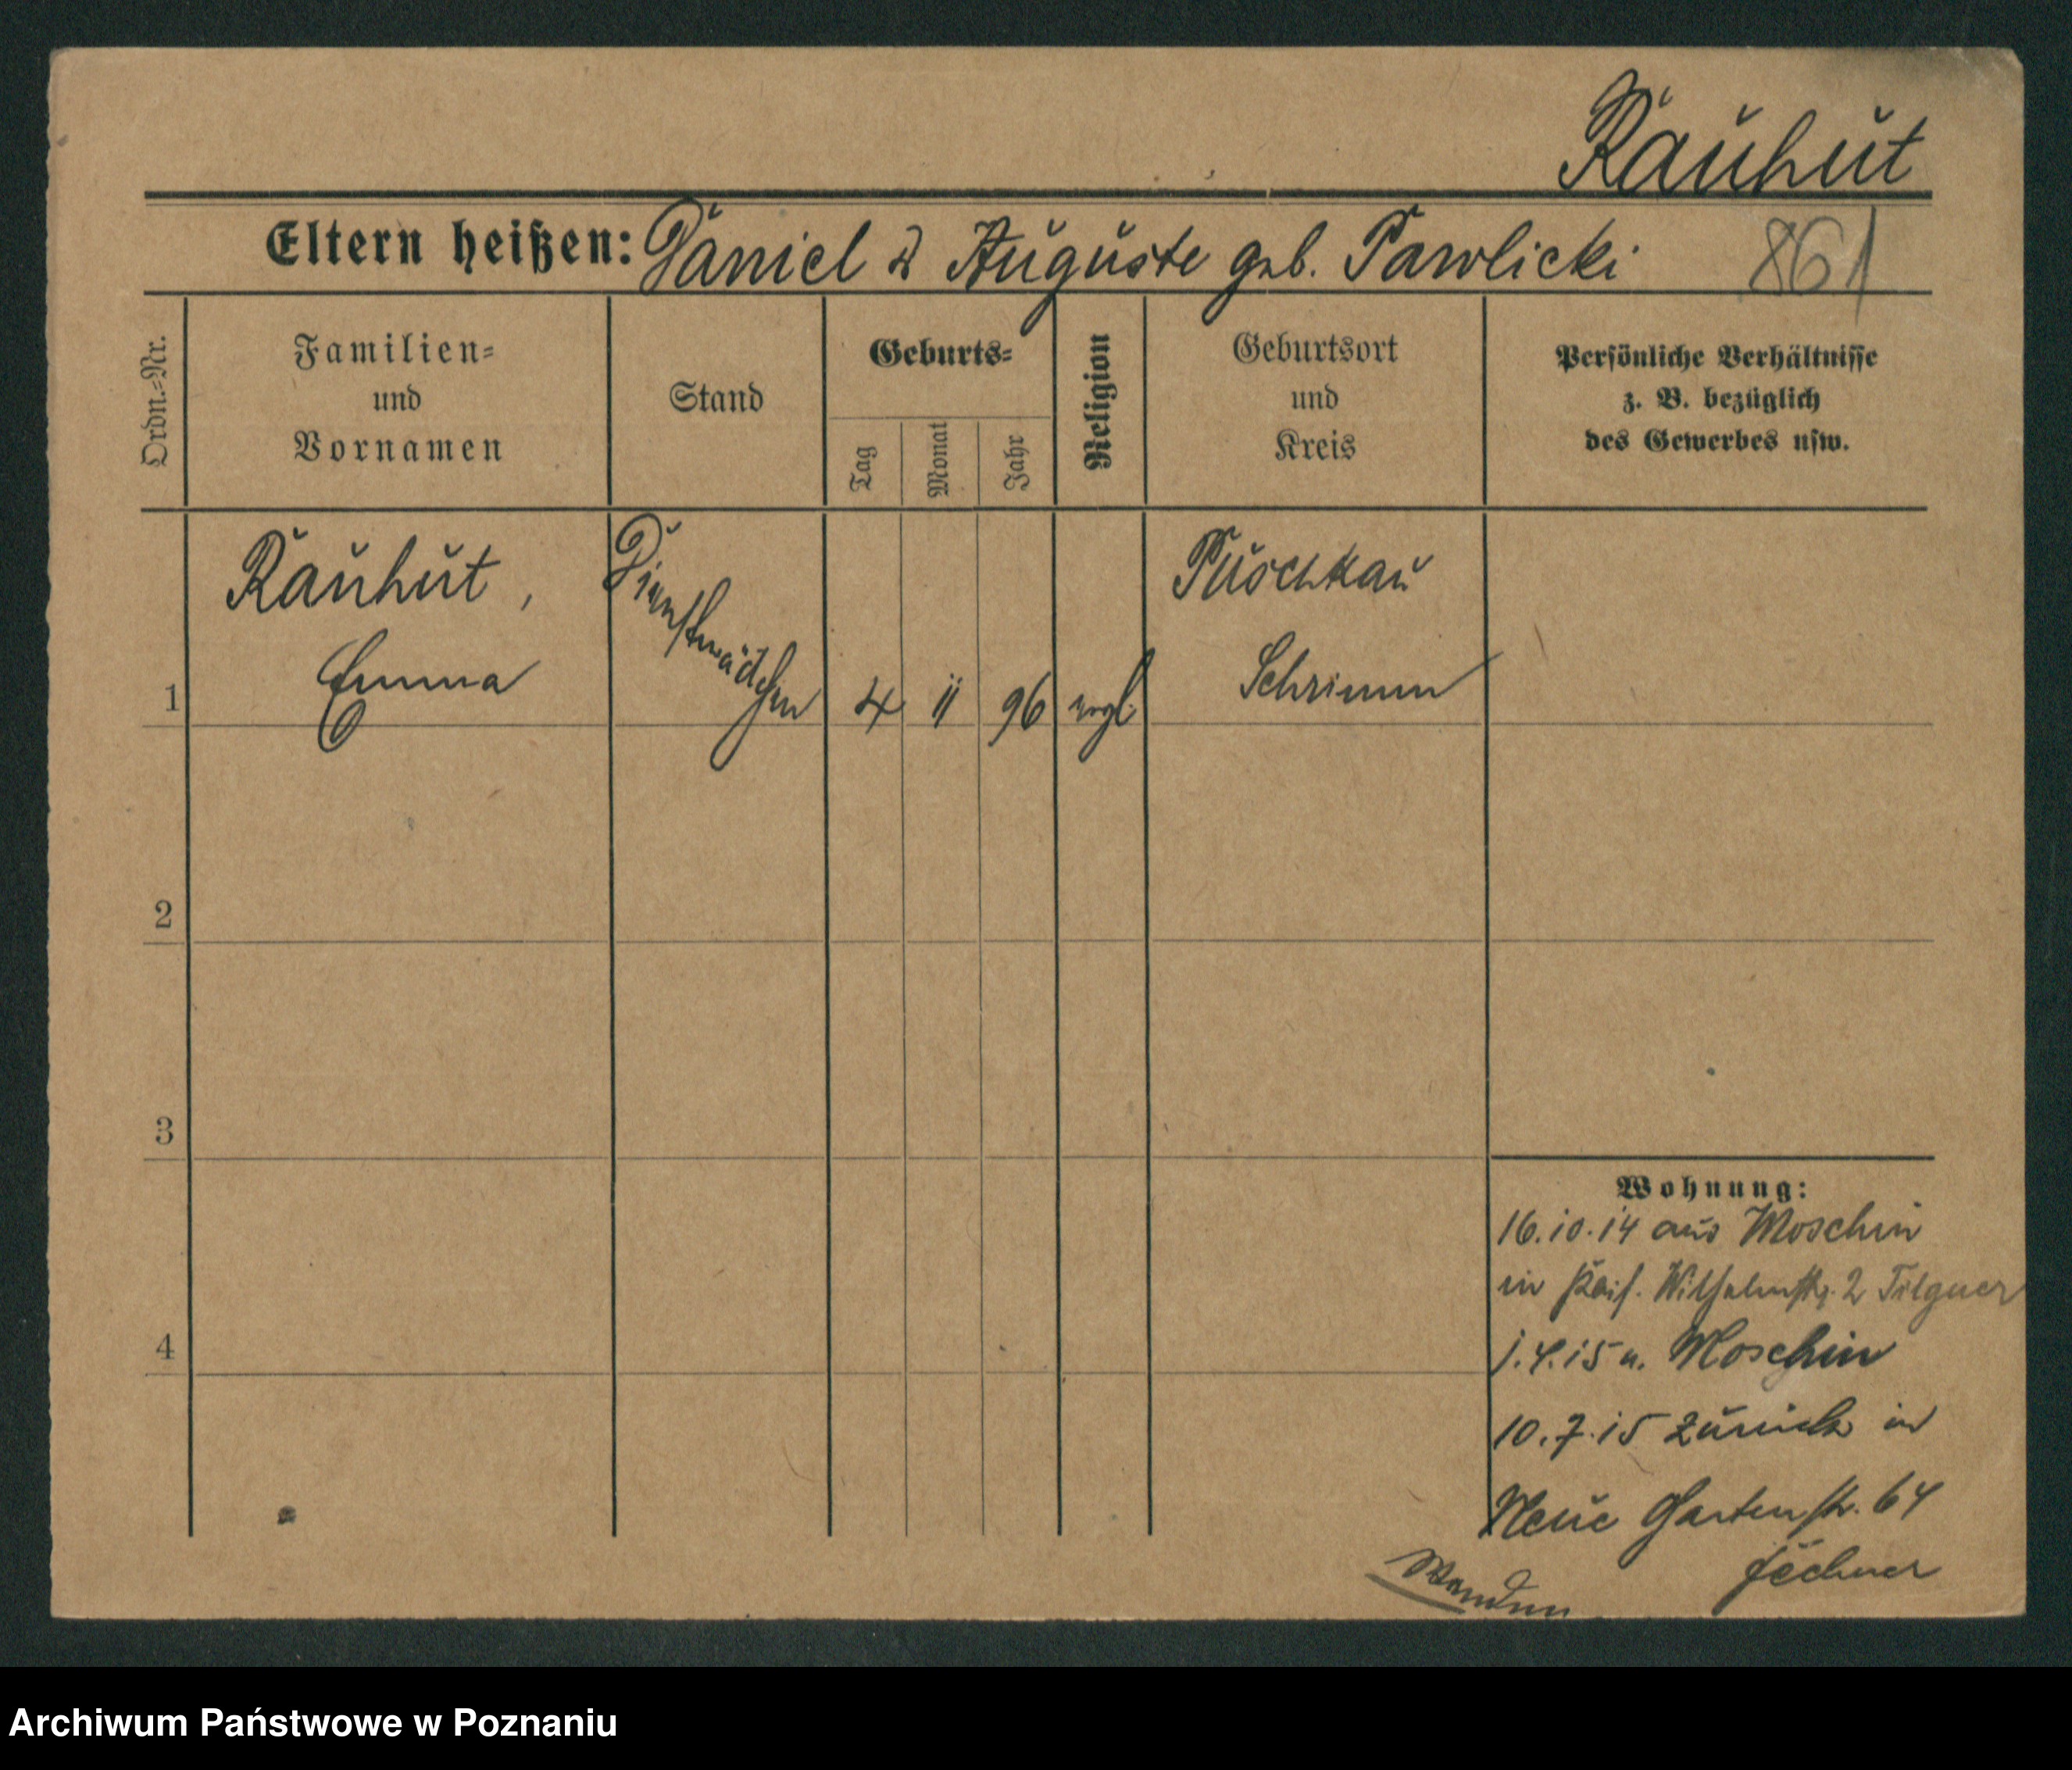 Rauhut
Eltern heißen: Daniel & Auguste geb. Pawlicki 861
Ordn.-Nr.
Familien-
und
Vornamen
Stand
Geburts-
Tag
Monat
Jahr
Religion
Geburtsort
und
Kreis
Persönliche Verhältnisse
z. B. bezüglich
des Gewerbes usw.
Rauhut,
Emma
Dienstmädchen
Puschkau
Schrimm
1 4 11 96 evgl.
2
3
4
Wohnung:
16.10.14 aus Moschin
in Kais. Wilhelmstr. 2 Tilgner
1.4.15 n. Moschin
10.7.15 zurück in
Neue Gartenstr. 64
Fechner
Archiwum Państwowe w Poznaniu